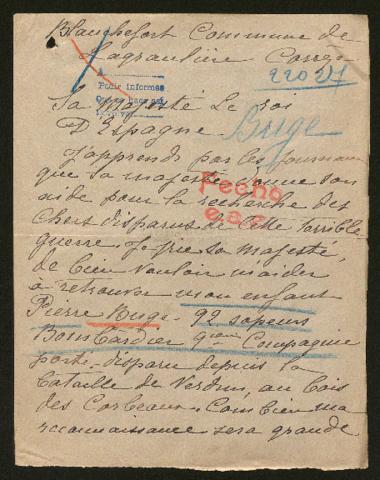 Blanchefort Commune de
Lagraulière Corrèze
A
Pedir informes
22027
Sa Majesté Le roi
D'Espagne.
Buge
J'apprends par les journaux
que sa majesté donne son
aide pour la recherche des
Fecho
chers disparus de cette terrible
guerre. Je prie sa majesté,
de bien vouloir m'aider
à retrouver mon enfant
Pierre Buge. 92 sapeurs
Bombardier Compagnie
porté disparu depuis la
bataille de Verdun, au bois
des Corbeaux. Combien ma
reconnaissance sera grande